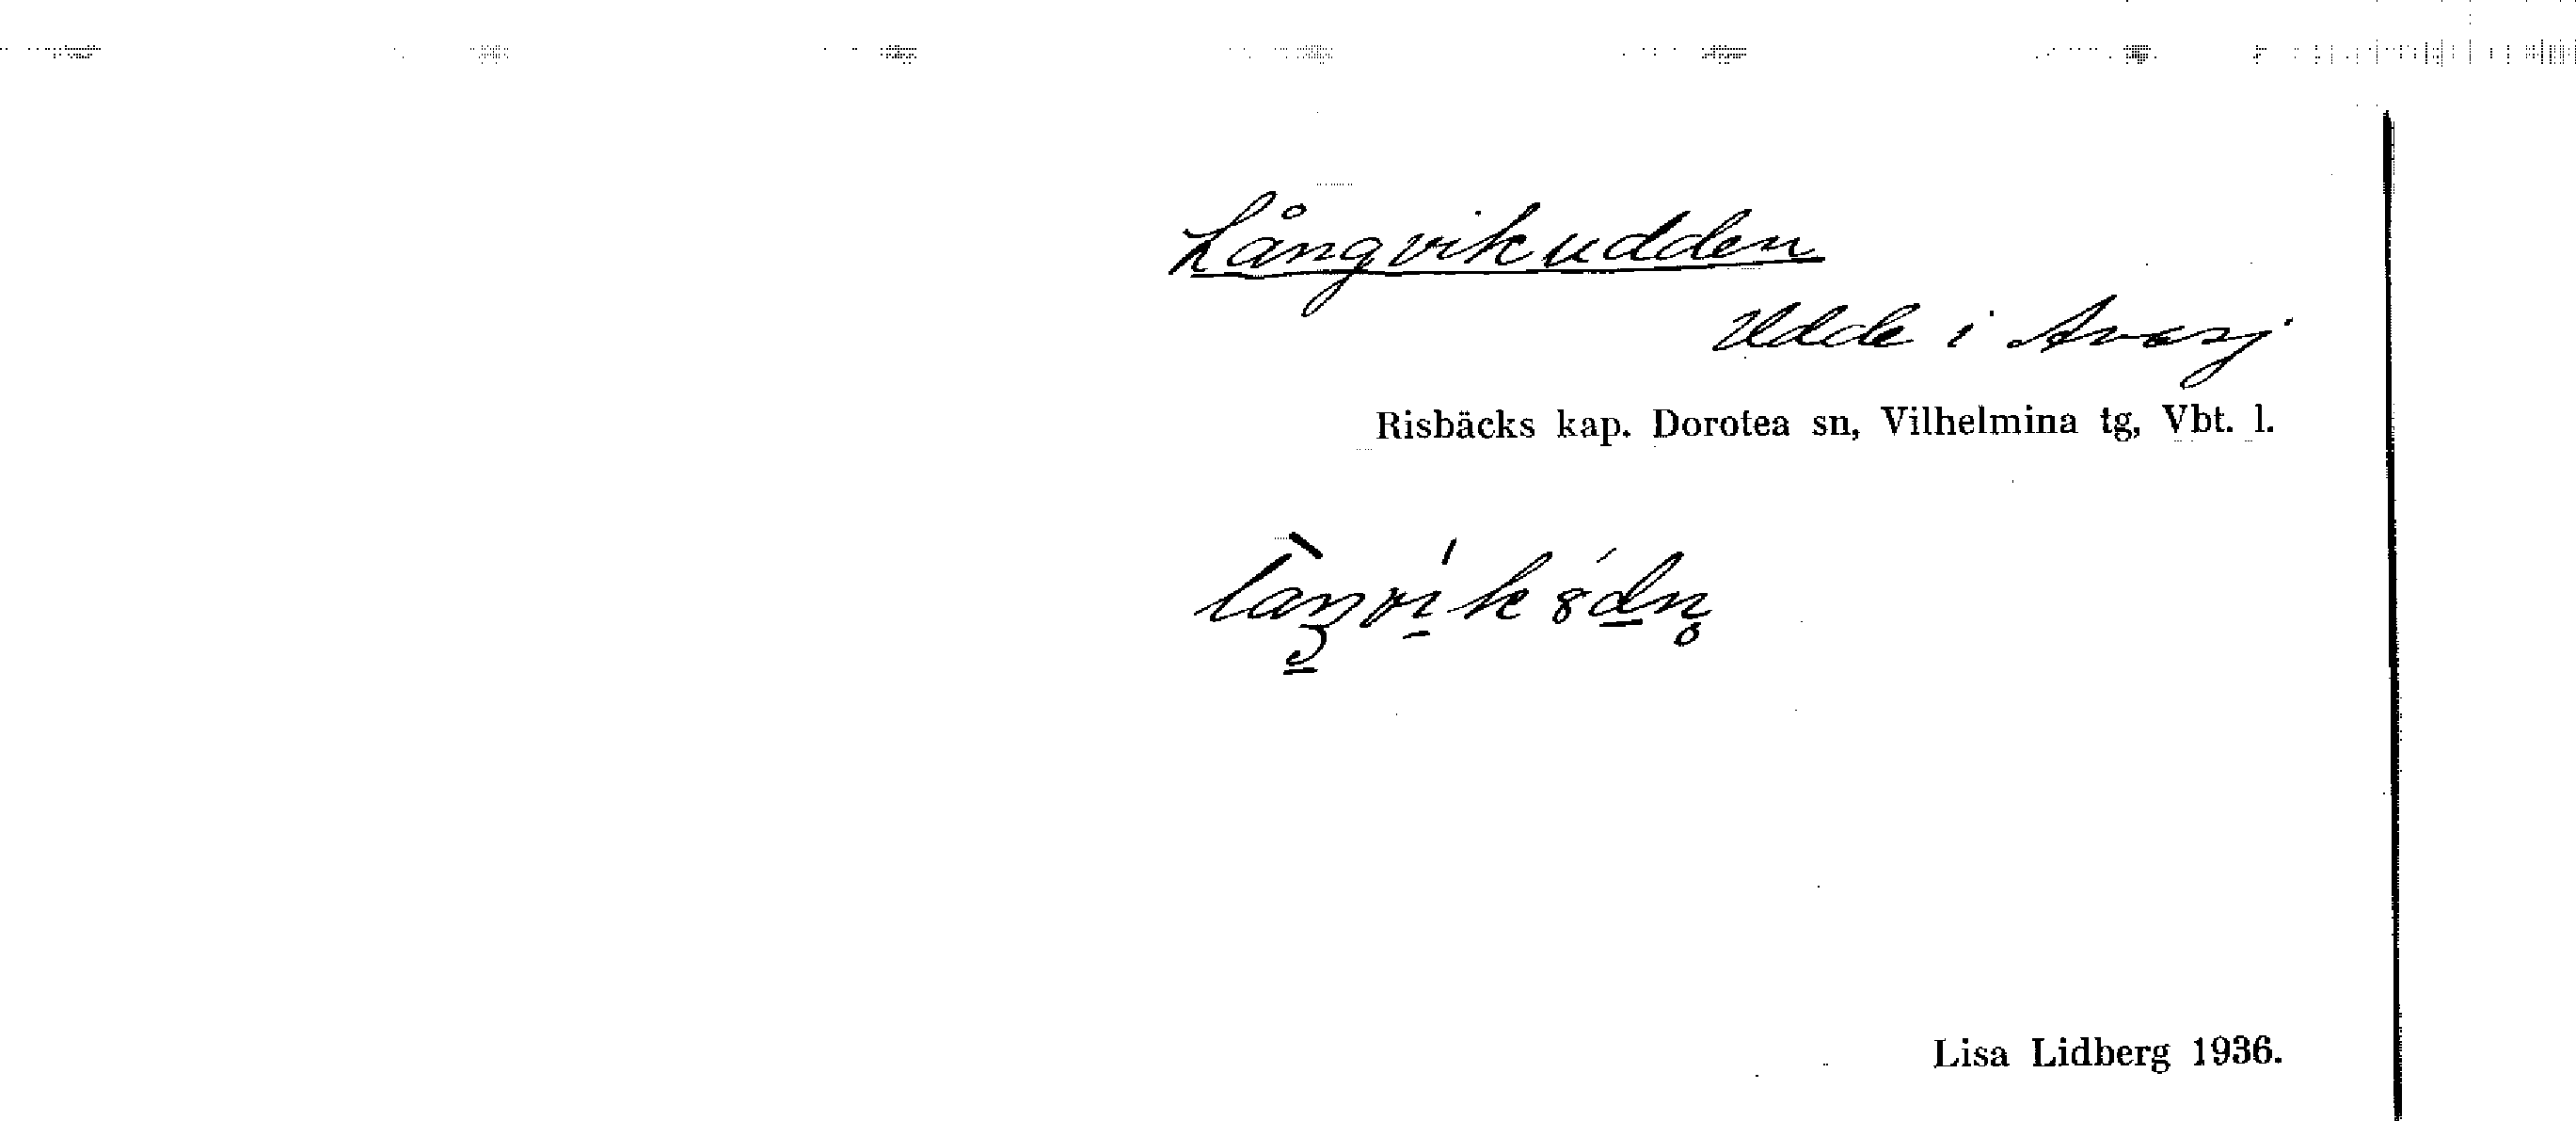 Långvikudden
Udde i Avasj.
Risbäcks kap. Dorotea sn, Vilhelmina tg, Vbt. l.
Lisa Lidberg 1936.